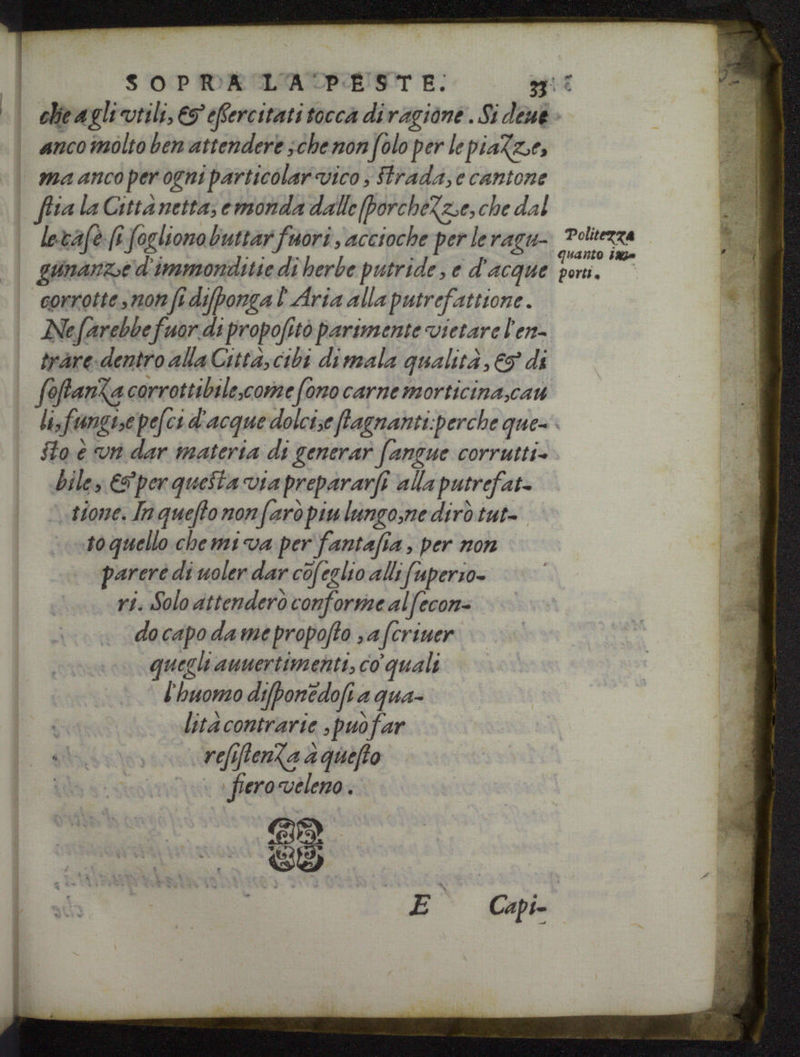 SOPRA LA PESTE. 33
che a gli vtili, & eßercitati tocca di ragione. Si deue
anco molto ben attendere, che non ſolo per le piazze,
ma anco per ogni particolar vico, strada, e cantone
ſtia la Città netta, e monda dalle ſporchezze, che dal
le caſe ſi ſogliono buttar fuori, accioche per le ragu-
gunanze d'immonditie di herbe putride, e d'acque
corrotte, non ſi diſponga l'Aria alla putrefattione.
Ne ſarebbe fuor di propoſito parimente vietare l'en-
trare dentro alla Città, cibi di mala qualità, & di
ſoſtanza corrottibile, come ſono carne morticina, cau
li, fungi, e peſci d'acque dolci, e ſtagnanti: perche que-
sto è vn dar materia di generar ſangue corrutti-
bile, & per questa via prepararſi alla putrefat-
tione. In queſto non ſarò piu lungo, ne dirò tut-
to quello che mi va per fantaſia, per non
parere di uoler dar cõſeglio alli ſuperio-
ri. Solo attenderò conforme al ſecon-
do capo da me propoſto, a ſcriuer
quegli auuertimenti, co' quali
l'huomo diſponẽdoſi a qua-
lità contrarie, può far
reſiſtenza à queſto
fiero veleno.
Politezza
quanto im-
porti.
E Capi-